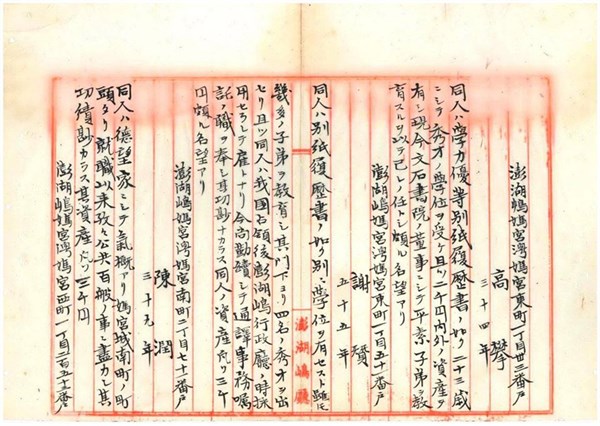 澎湖嶋媽宮澳媽宮東町一丁目四十三番戶
高攀
三十四年
同人ハ學力優等別紙履歷書ノ如ク二十三歲
ニシテ秀才ノ學位ヲ受ケ且ツ二千円內外ノ資産ヲ
有シ現今文石書院ノ董事ニシテ平素子弟ヲ敎
育スルヲ以テ己レノ任トシ頗ル名望アリ
澎湖嶋媽宮澳媽宮東町一丁目三十二番戶
謝贊
五十五年
同人ハ別紙履歷書ノ如ク別ニ學位ヲ有セスト雖モ
澎湖嶋廳
幾多ノ子弟ヲ敎育シ其門下ヨリ四名ノ秀才ヲ出
セリ且ツ同人ハ我國占領後澎湖嶋行政廳ノ時採
用セラレテ雇トナリ今尚勤續シテ通譯事務囑
託ノ職ヲ奉シ其功尠ナカラス同人ノ資産凡ソ三千
円頗ル名望アリ
澎湖嶋媽宮澳媽宮南町二丁目七十二番戶
陳潤
三十九年
同人ハ德望家ニシテ氣概アリ媽宮城南町ノ町
頭タリ就職以來孜々公共百般ノ事ニ盡力シ其
功績尠カラス其資産凡ソ三千円
澎湖嶋媽宮澳媽宮西町一丁目二百五十三番戶